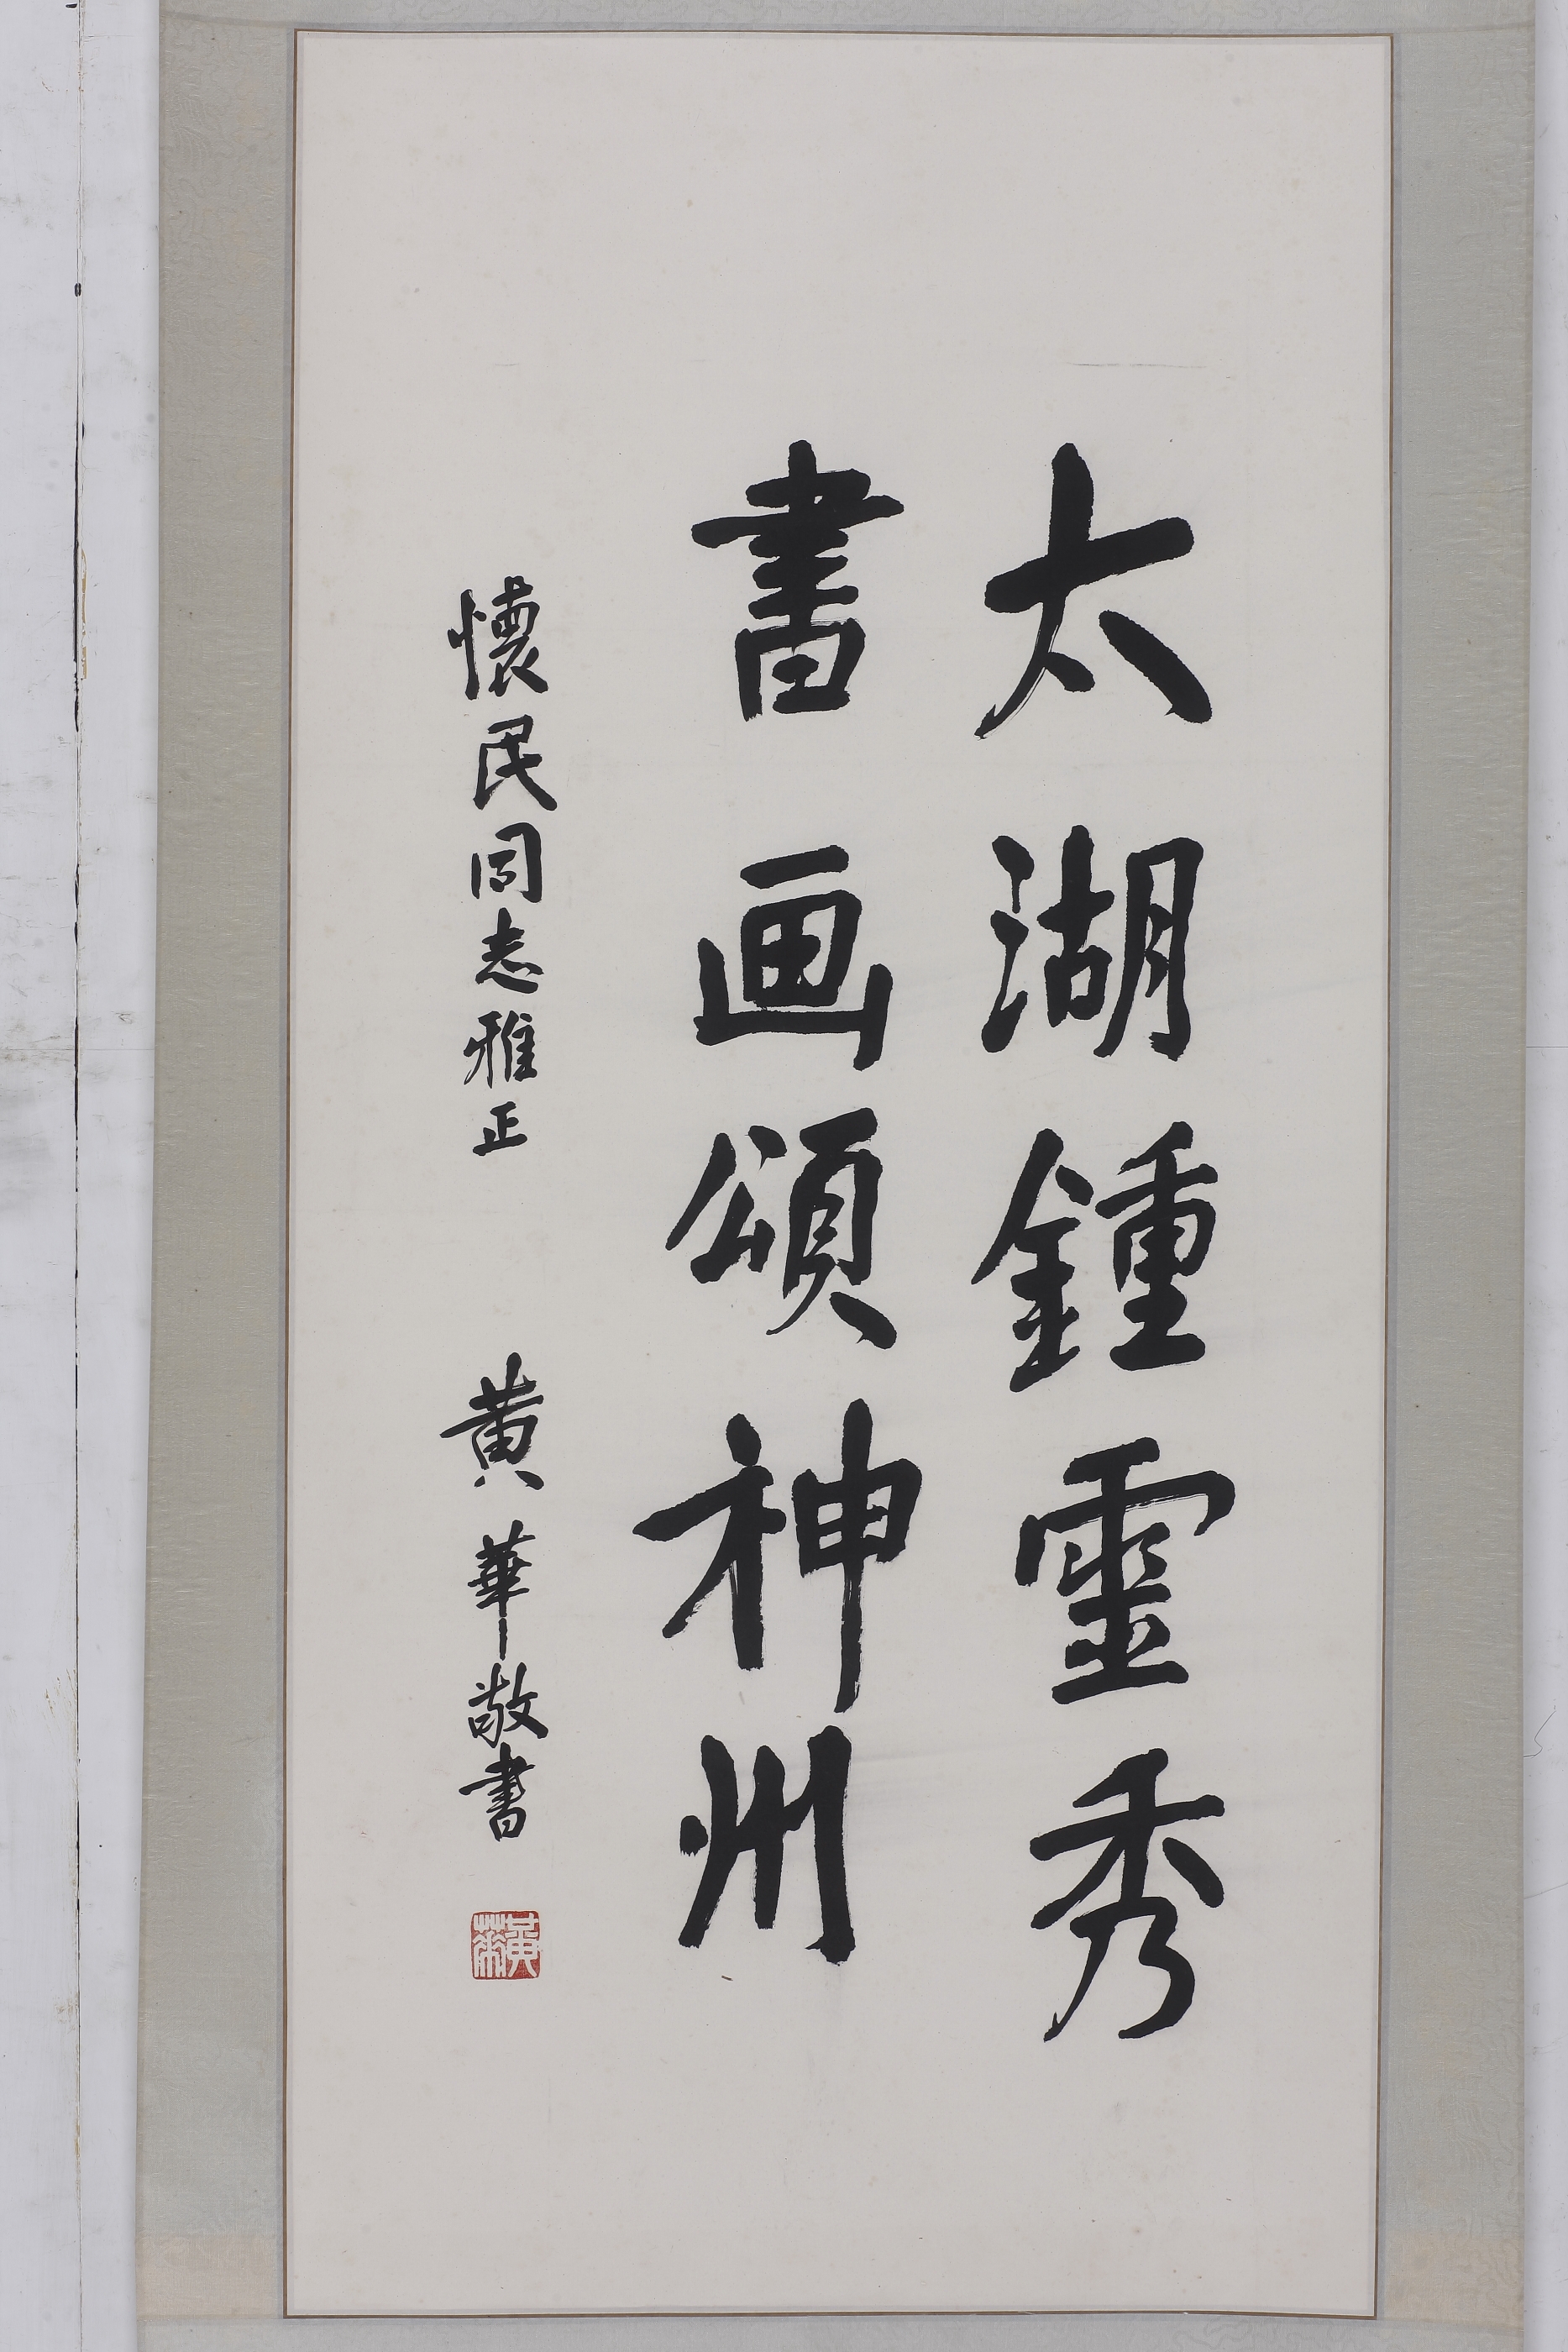 太湖鍾靈秀
書画頌神州
懷民同志雅正 黄華敬書
黃華